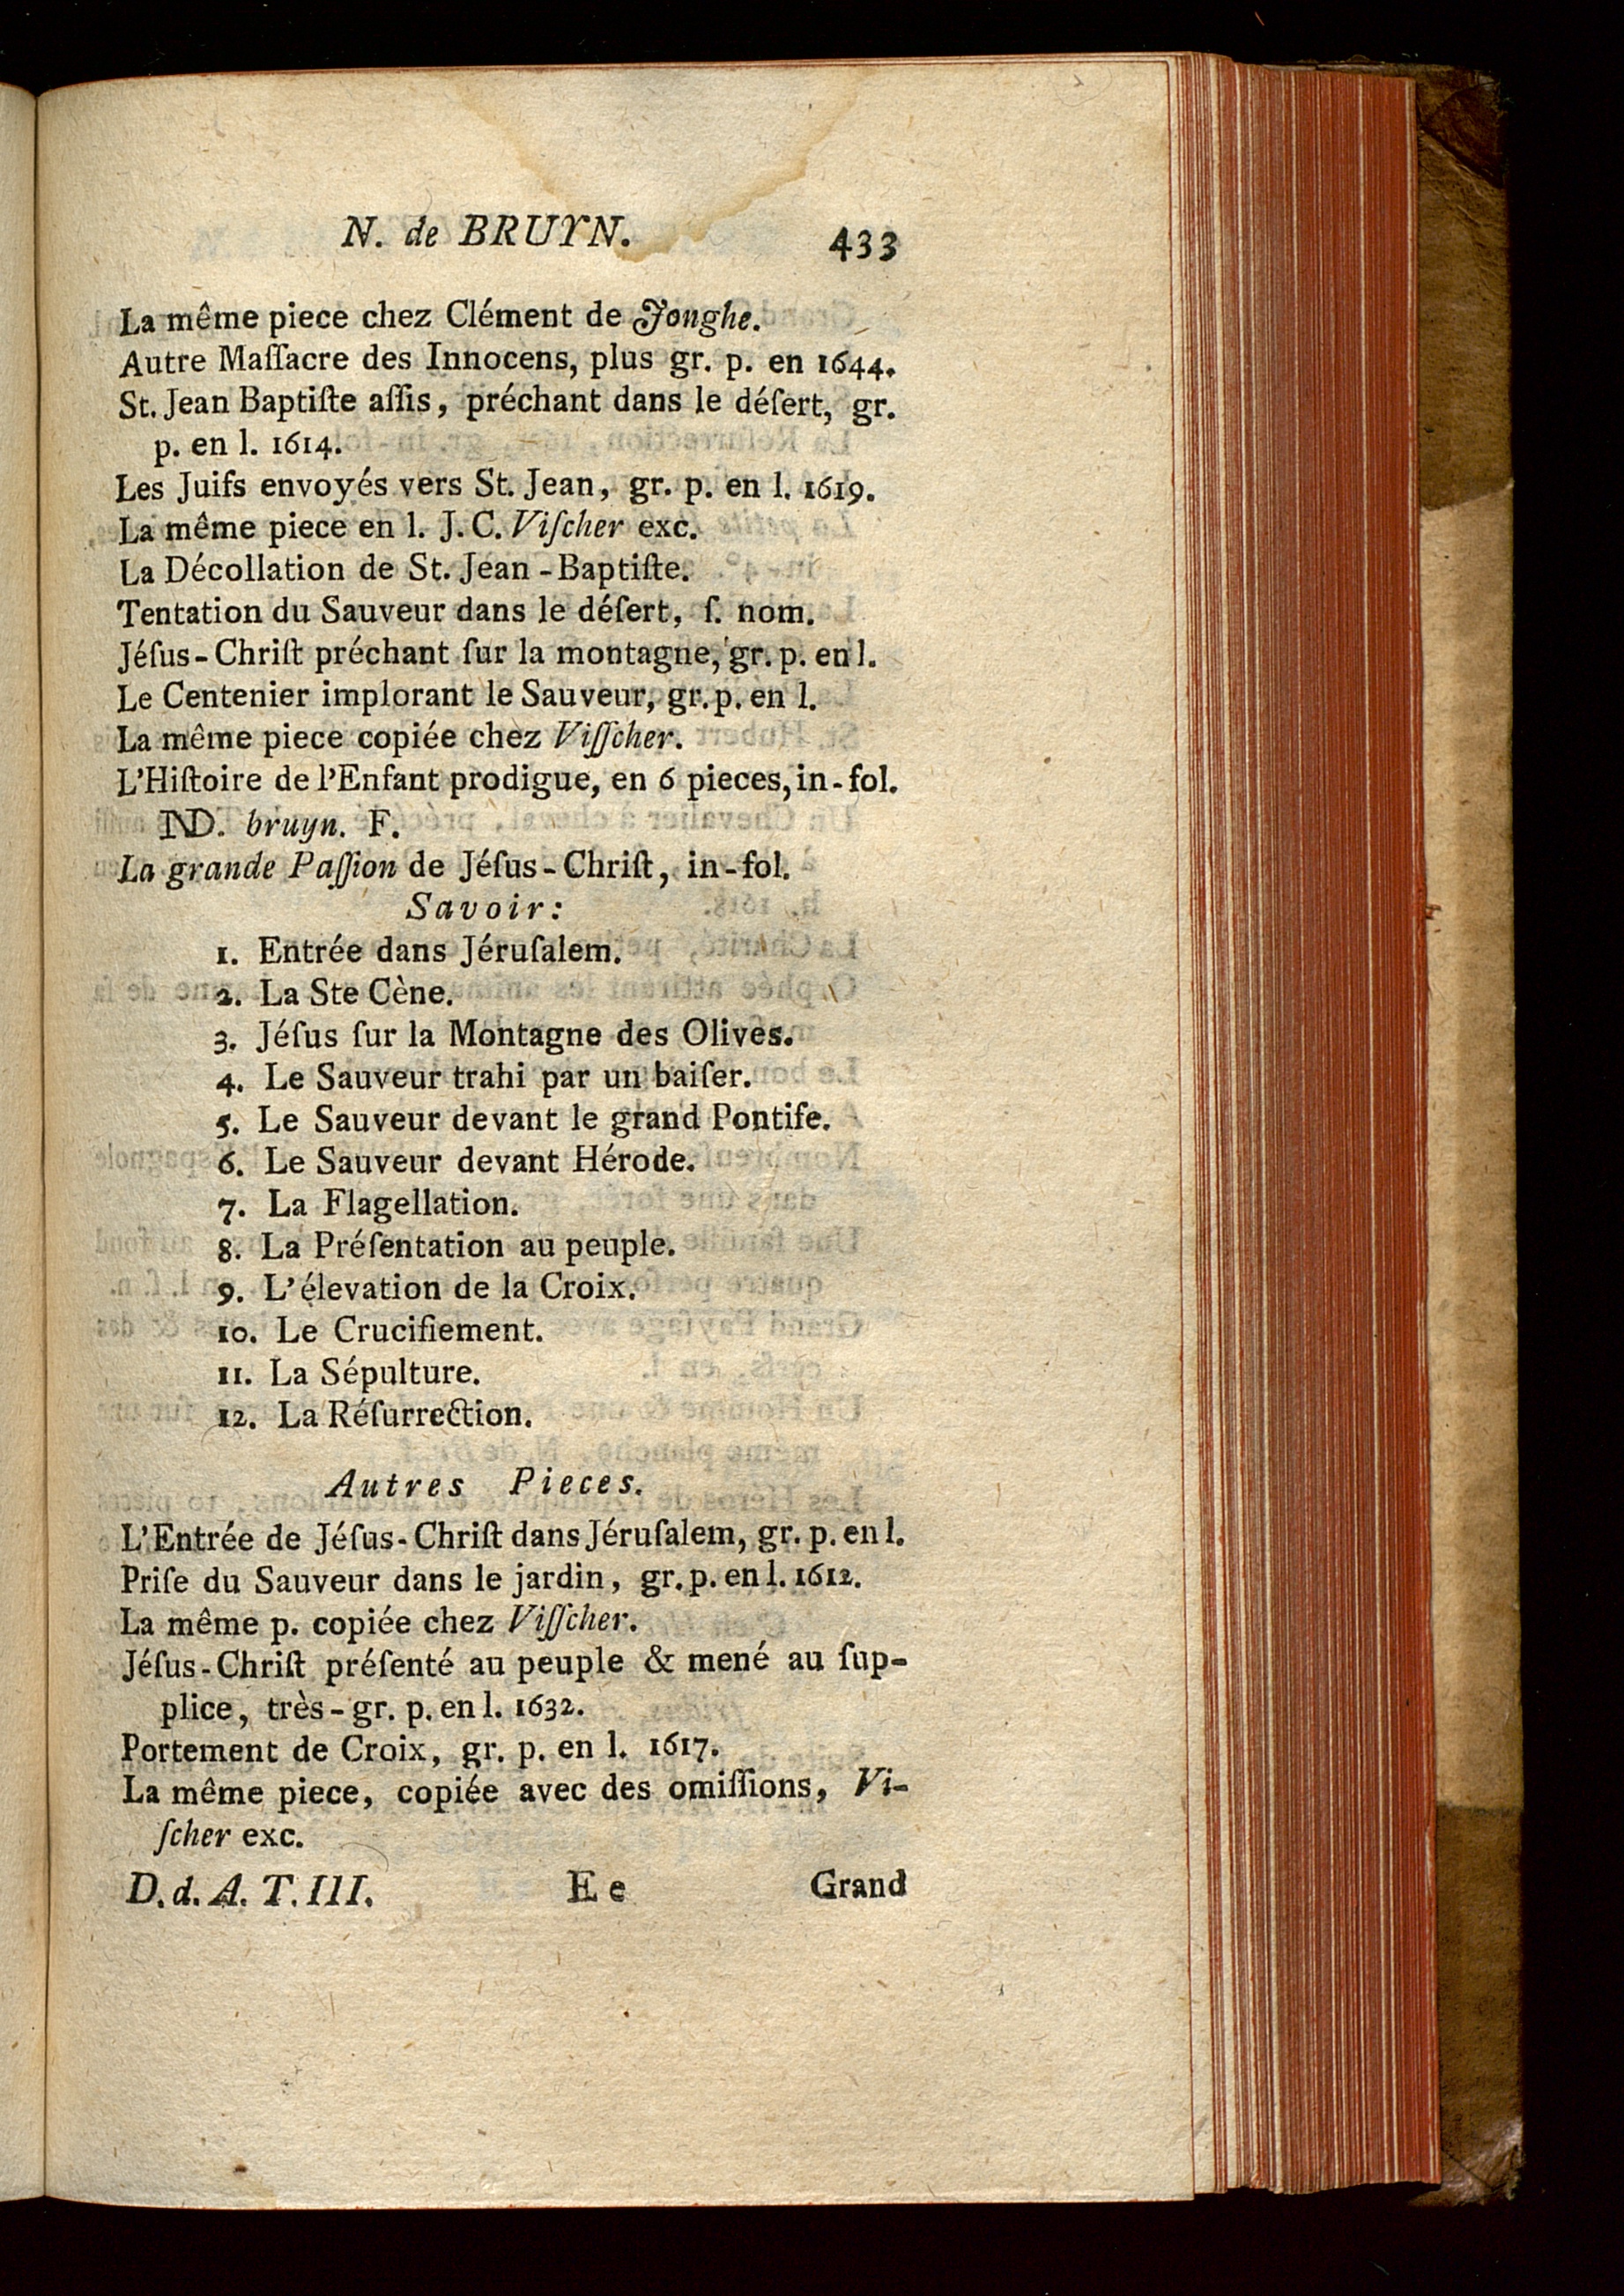 N. de BRUYN. 433
La même piece chez Clément de Jonghe.
Autre Maſſacre des Innocens, plus gr. p. en 1644.
St. Jean Baptiſte aſſis, préchant dans le déſert, gr.
p. en l. 1614.
Les Juifs envoyés vers St. Jean, gr. p. en l. 1619.
La même piece en l. J. C. Viſcher exc.
La Décollation de St. Jean-Baptiſte.
Tentation du Sauveur dans le déſert, ſ. nom.
Jéſus-Chriſt préchant ſur la montagne, gr. p. en l.
Le Centenier implorant le Sauveur, gr. p. en l.
La même piece copiée chez Viſſcher.
L'Hiſtoire de l'Enfant prodigue, en 6 pieces, in-fol.
ND. bruyn. F.
La grande Paſſion de Jéſus-Chriſt, in-fol.
Savoir:
1. Entrée dans Jéruſalem.
2. La Ste Cène.
3. Jéſus ſur la Montagne des Olives.
4. Le Sauveur trahi par un baiſer.
5. Le Sauveur devant le grand Pontife.
6. Le Sauveur devant Hérode.
7. La Flagellation.
8. La Préſentation au peuple.
9. L'élevation de la Croix.
10. Le Crucifiement.
11. La Sépulture.
12. La Réſurrection.
Autres Pieces.
L'Entrée de Jéſus-Chriſt dans Jéruſalem, gr. p. en l.
Priſe du Sauveur dans le jardin, gr. p. en l. 1612.
La même p. copiée chez Viſſcher.
Jéſus-Chriſt préſenté au peuple & mené au ſup-
plice, très-gr. p. en l. 1632.
Portement de Croix, gr. p. en l. 1617.
La même piece, copiée avec des omiſſions, Vi-
ſcher exc.
D. d. A. T. III. E e Grand